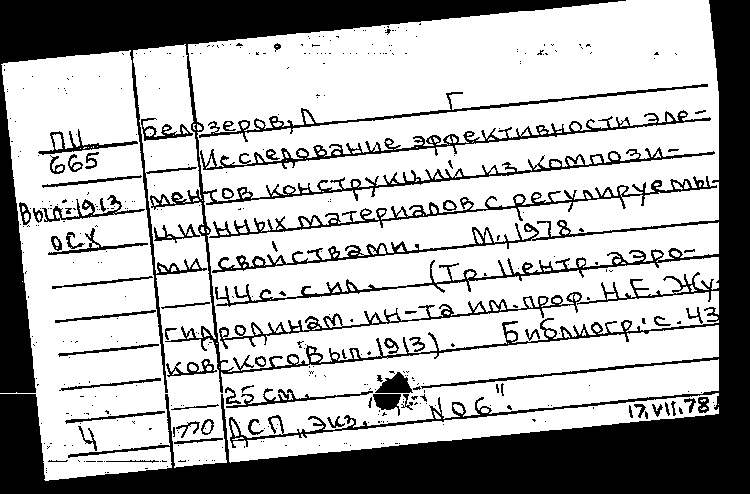 Белозеров, Л Г
ПЦ
665
Исследование эффективности эле-
Вып.1913
ментов конструкций из компози-
ОСХ
ционных материалов с регулируемы-
ми свойствами. М., 1978.
44 с. с ил. (Тр. Центр. аэро-
гидродинам. ин-та им. проф. Н.Е. Жу-
ковского. Вып. 1913). Библиогр.: с. 43
25 см.
4 1770 ДСП "Экз. N06".
17.VII.78.